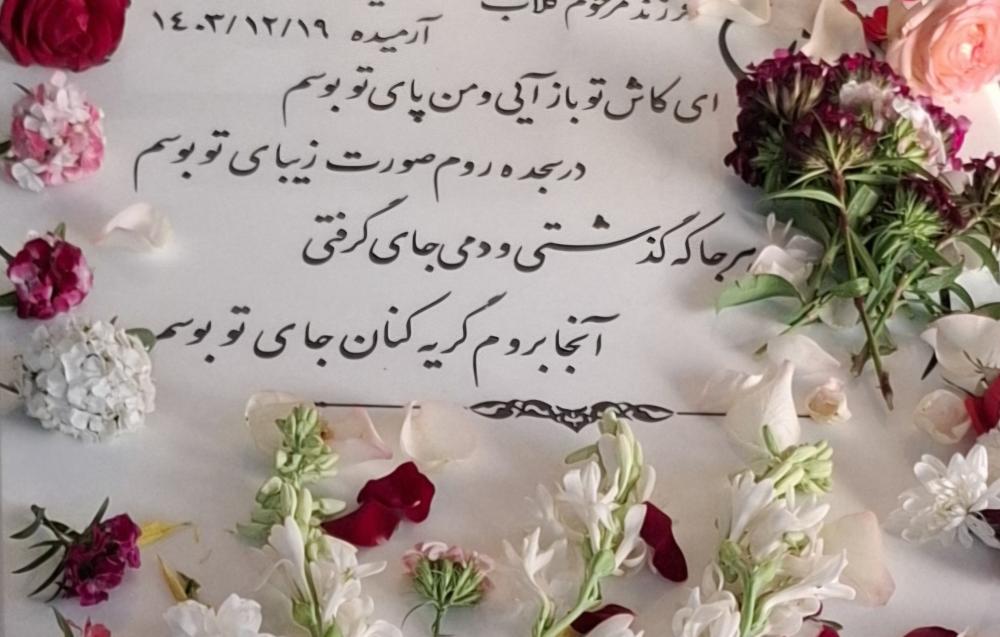 فرزند مرحوم گلاب
آرمیده ۱۴۰۳/۱۲/۱۹
ای کاش تو باز آیی و من پای تو بوسم
در سجده روم صورت زیبای تو بوسم
هرجا که گذشتی و دمی جای گرفتی
آنجا بروم گریه کنان جای تو بوسم